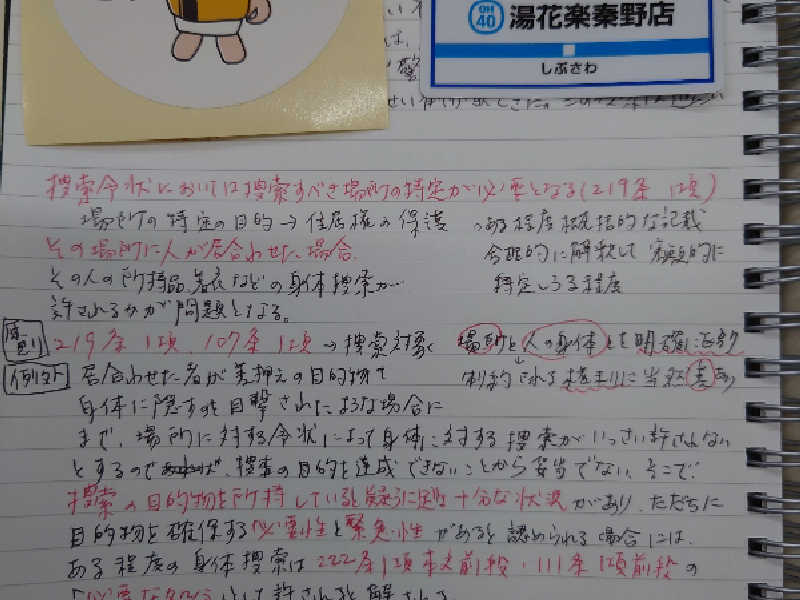 OH
40
湯花楽秦野店
しぶさわ
捜索令状においては捜索すべき場所の特定が必要となる(219条1項)
場所の特定の目的→住居権の保護
ある程度概括的な記載
その場所に人が居合わせた場合、
合理的に解釈して客観的に
その人の所持品、着衣などの身体捜索が
特定しうる程度
許されるかが問題となる。
原則 219条1項、107条1項→捜索対象
場所と人の身体とを明確に区別
例外 居合わせた者が差押えの目的物を
制約される権利に当然差あり
身体に隠すのを目撃されたような場合に
まで、場所に対する令状によって身体に対する捜索がいっさい許されない
とするのであれば、捜査の目的を達成できないことから妥当でない。そこで、
捜索の目的物を所持していると疑うに足りる十分な状況があり、ただちに
目的物を確保する必要性と緊急性があると認められる場合には、
ある程度の身体捜索は222条1項本文前段・111条1項前段の